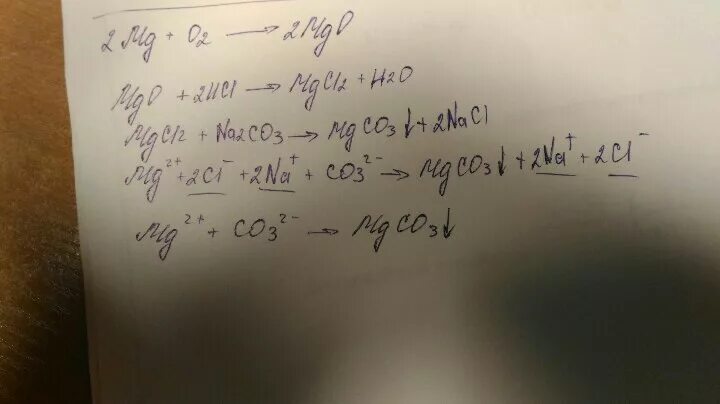 2Mg + O2 → 2MgO
MgO + 2HCl → MgCl2 + H2O
MgCl2 + Na2CO3 → MgCO3↓ + 2NaCl
Mg²⁺ + 2Cl⁻ + 2Na⁺ + CO3²⁻ → MgCO3↓ + 2Na⁺ + 2Cl⁻
Mg²⁺ + CO3²⁻ → MgCO3↓